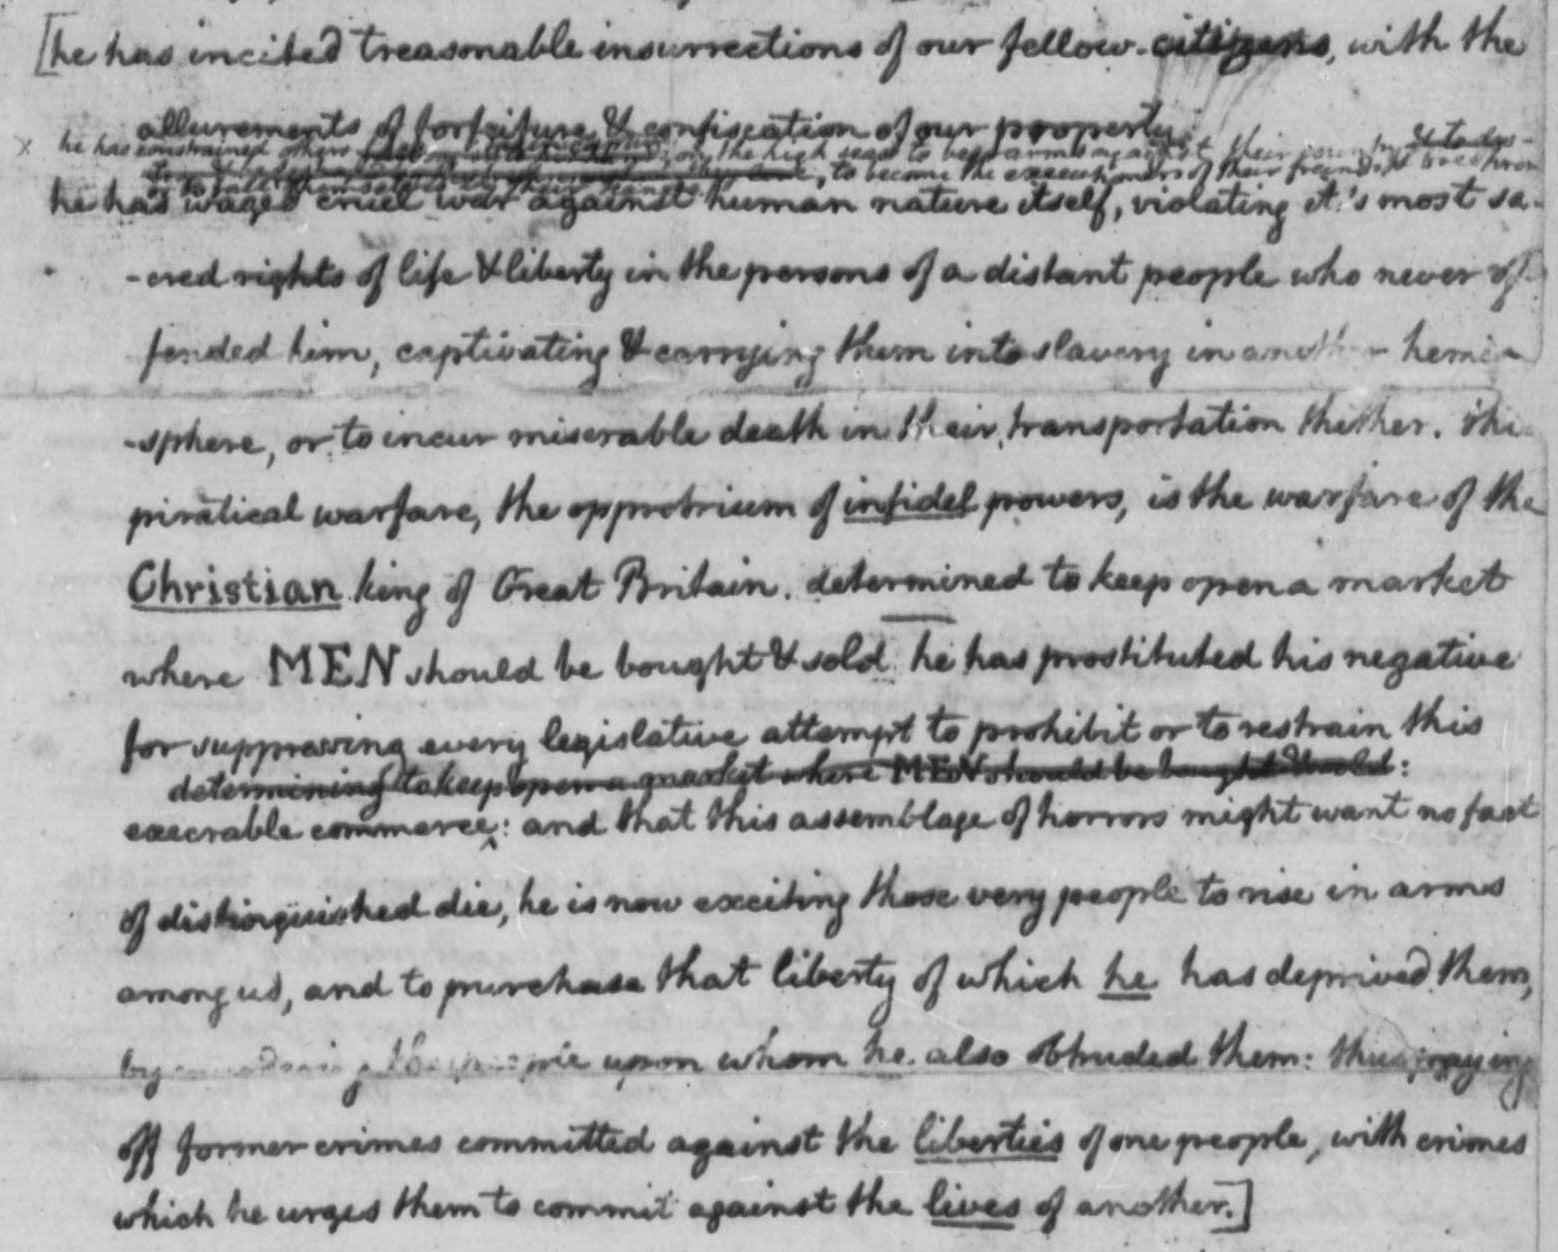 [he has incited treasonable insurrections of our fellow-citizens, with the
allurements of forfeiture & confiscation of our property.
x he has constrained others on the high seas to bear arms against their
, to become the executioners of their friends &
or to fall themselves by their hands.
he has waged cruel war against human nature itself, violating it's most sa-
-cred rights of life & liberty in the persons of a distant people who never of
fended him, captivating & carrying them into slavery in another hemi-
-sphere, or to incur miserable death in their transportation thither. this
piratical warfare, the opprobrium of infidel powers, is the warfare of the
Christian king of Great Britain. determined to keep open a market
where MEN should be bought & sold he has prostituted his negative
for suppressing every legislative attempt to prohibit or to restrain this
determining to keep open a market where MEN should be bought & sold:
execrable commerce: and that this assemblage of horrors might want no fact
of distinguished die, he is now exciting those very people to rise in arms
among us, and to purchase that liberty of which he has deprived them,
by upon whom he also obtruded them: thus paying
off former crimes committed against the liberties of one people, with crimes
which he urges them to commit against the lives of another.]